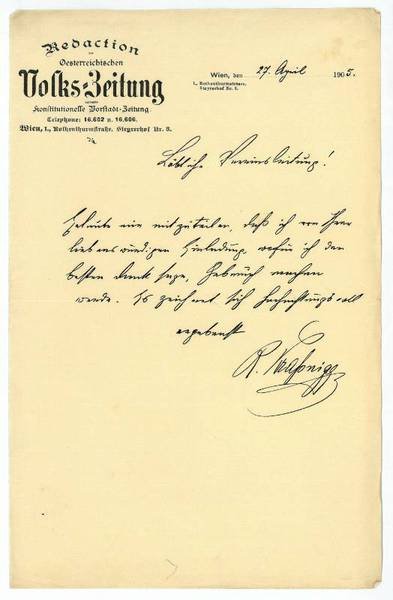 Redaction
der
Oesterreichischen
Volks-Zeitung
vormals
Konstitutionelle Vorstadt-Zeitung.
Telephone: 16.682 u. 16.686.
Wien, I., Rothenthurmstraße, Steyrerhof Nr. 3.
Wien, den 27. April 1905.
I., Rothenthurmstrasse,
Steyrerhof Nr. 3.
Löbliche Vereinsleitung!
Erlaube mir mitzuteilen, daß ich von Ihrer
liebenswürdigen Einladung, wofür ich den
besten Dank sage, Gebrauch machen
werde. Es zeichnet sich hochachtungsvoll
ergebenst
R.